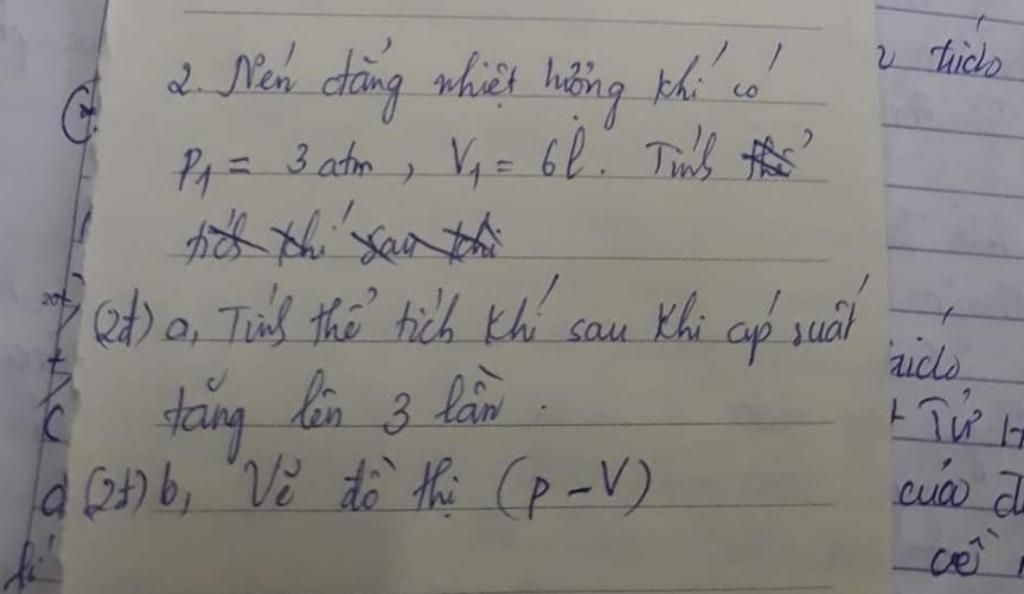 2. Nén đẳng nhiệt lượng khí có
P₁ = 3 atm, V₁ = 6l. Tính thể
tích khí sau khi
(2đ) a, Tính thể tích khí sau khi áp suất
tăng lên 3 lần.
(2đ) b, Vẽ đồ thị (p-V)
Từ
của